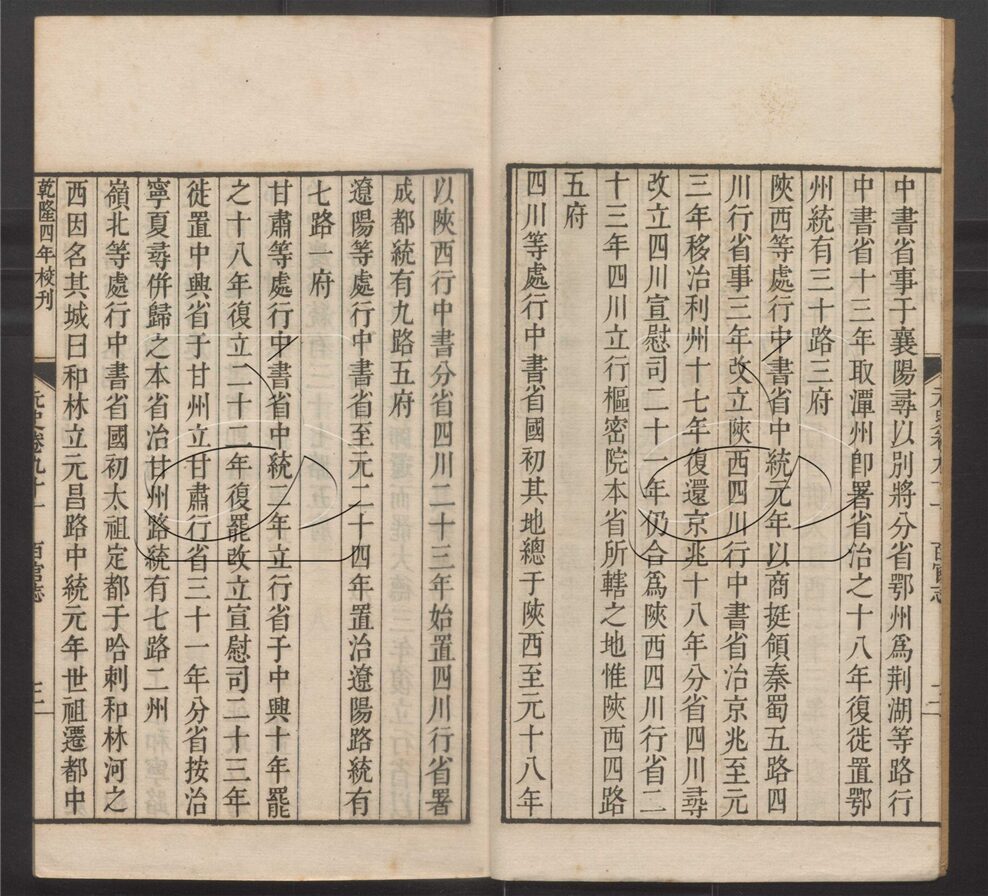 中書省事于襄陽尋以別將分省鄂州為荆湖等路行
中書省十三年取潭州卽署省治之十八年復徙置鄂
州統有三十路三府
陜西等處行中書省中統元年以商挺領秦蜀五路四
川行省事三年改立陜西四川行中書省治京兆至元
三年移治利州十七年復還京兆十八年分省四川尋
改立四川宣慰司二十一年仍合為陜西四川行省二
十三年四川立行樞密院本省所轄之地惟陜西四路
五府
四川等處行中書省國初其地總于陜西至元十八年
以陜西行中書分省四川二十三年始置四川行省署
成都統有九路五府
遼陽等處行中書省至元二十四年置治遼陽路統有
七路一府
甘肅等處行中書省中統二年立行省于中興十年罷
之十八年復立二十二年復罷改立宣慰司二十三年
徙置中興省于甘州立甘肅行省三十一年分省按治
寧夏尋併歸之本省治甘州路統有七路二州
嶺北等處行中書省國初太祖定都于哈剌和林河之
西因名其城曰和林立元昌路中統元年世祖遷都中
乾隆四年校刊
元史卷九十一 百官志 三